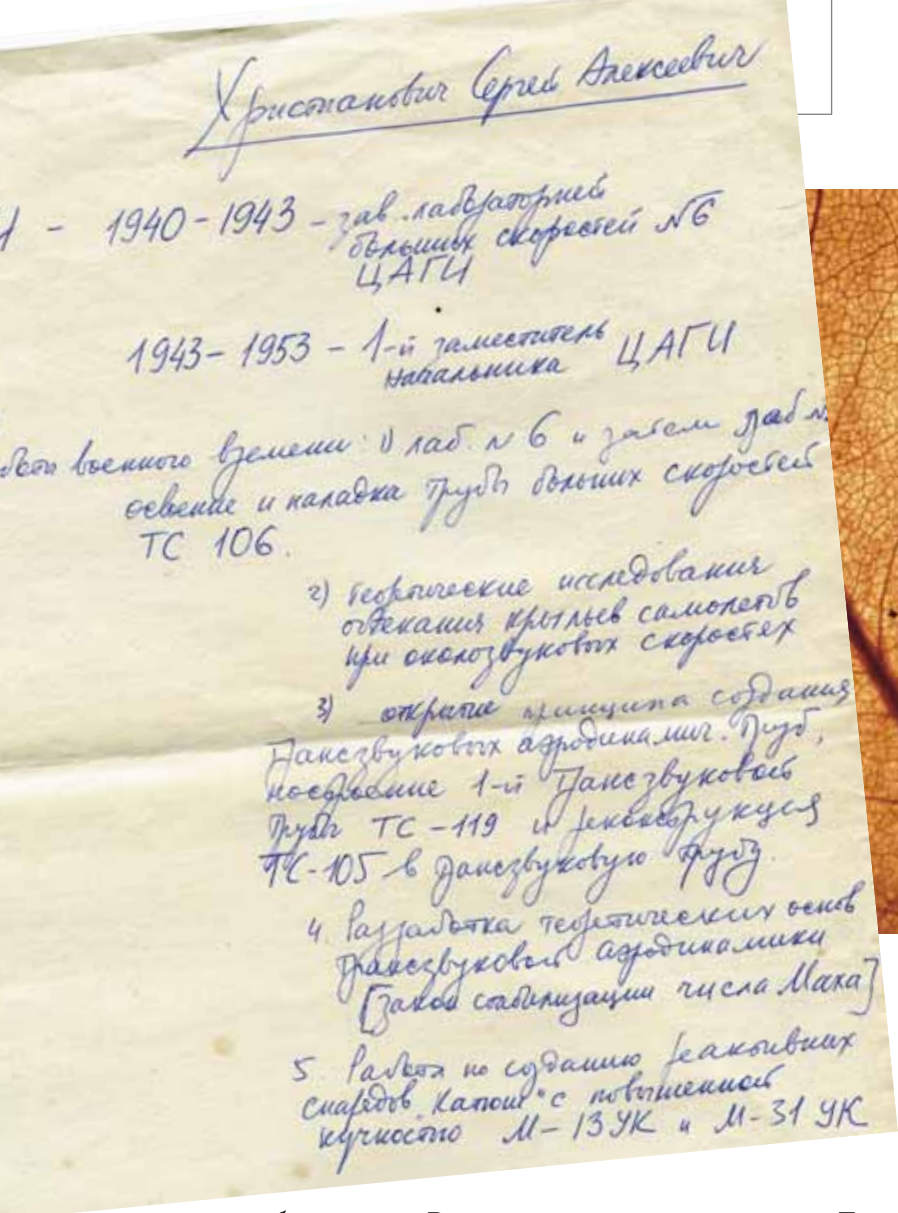 Христианович Сергей Алексеевич
1 - 1940-1943 - зав. лабораторией
больших скоростей №6
ЦАГИ
1943-1953 - 1-й заместитель
начальника ЦАГИ
военного времени: 1) лаб. № 6 и затем лаб №
освоение и наладка трубы больших скоростей
ТС 106.
2) теоретические исследования
обтекания крыльев самолетов
при околозвуковых скоростях
3) открытие принципа создания
трансзвуковых аэродинамич. труб,
построение 1-й трансзвуковой
трубы ТС-119 и реконструкция
ТС-105 в трансзвуковую трубу.
4. Разработка теоретических основ
трансзвуковой аэродинамики
[закон стабилизации числа Маха]
5. Работа по созданию реактивных
снарядов "Катюш" с повышенной
кучностью М-13 УК и М-31 УК